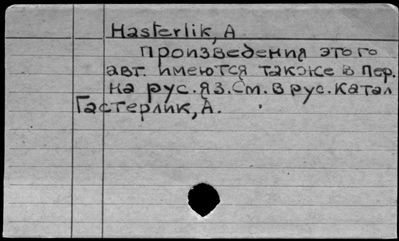 Hasterlik, A
Произведения этого
авт. имеются также в пер.
на рус. яз. См. в рус. катал
Гастерлик, А.